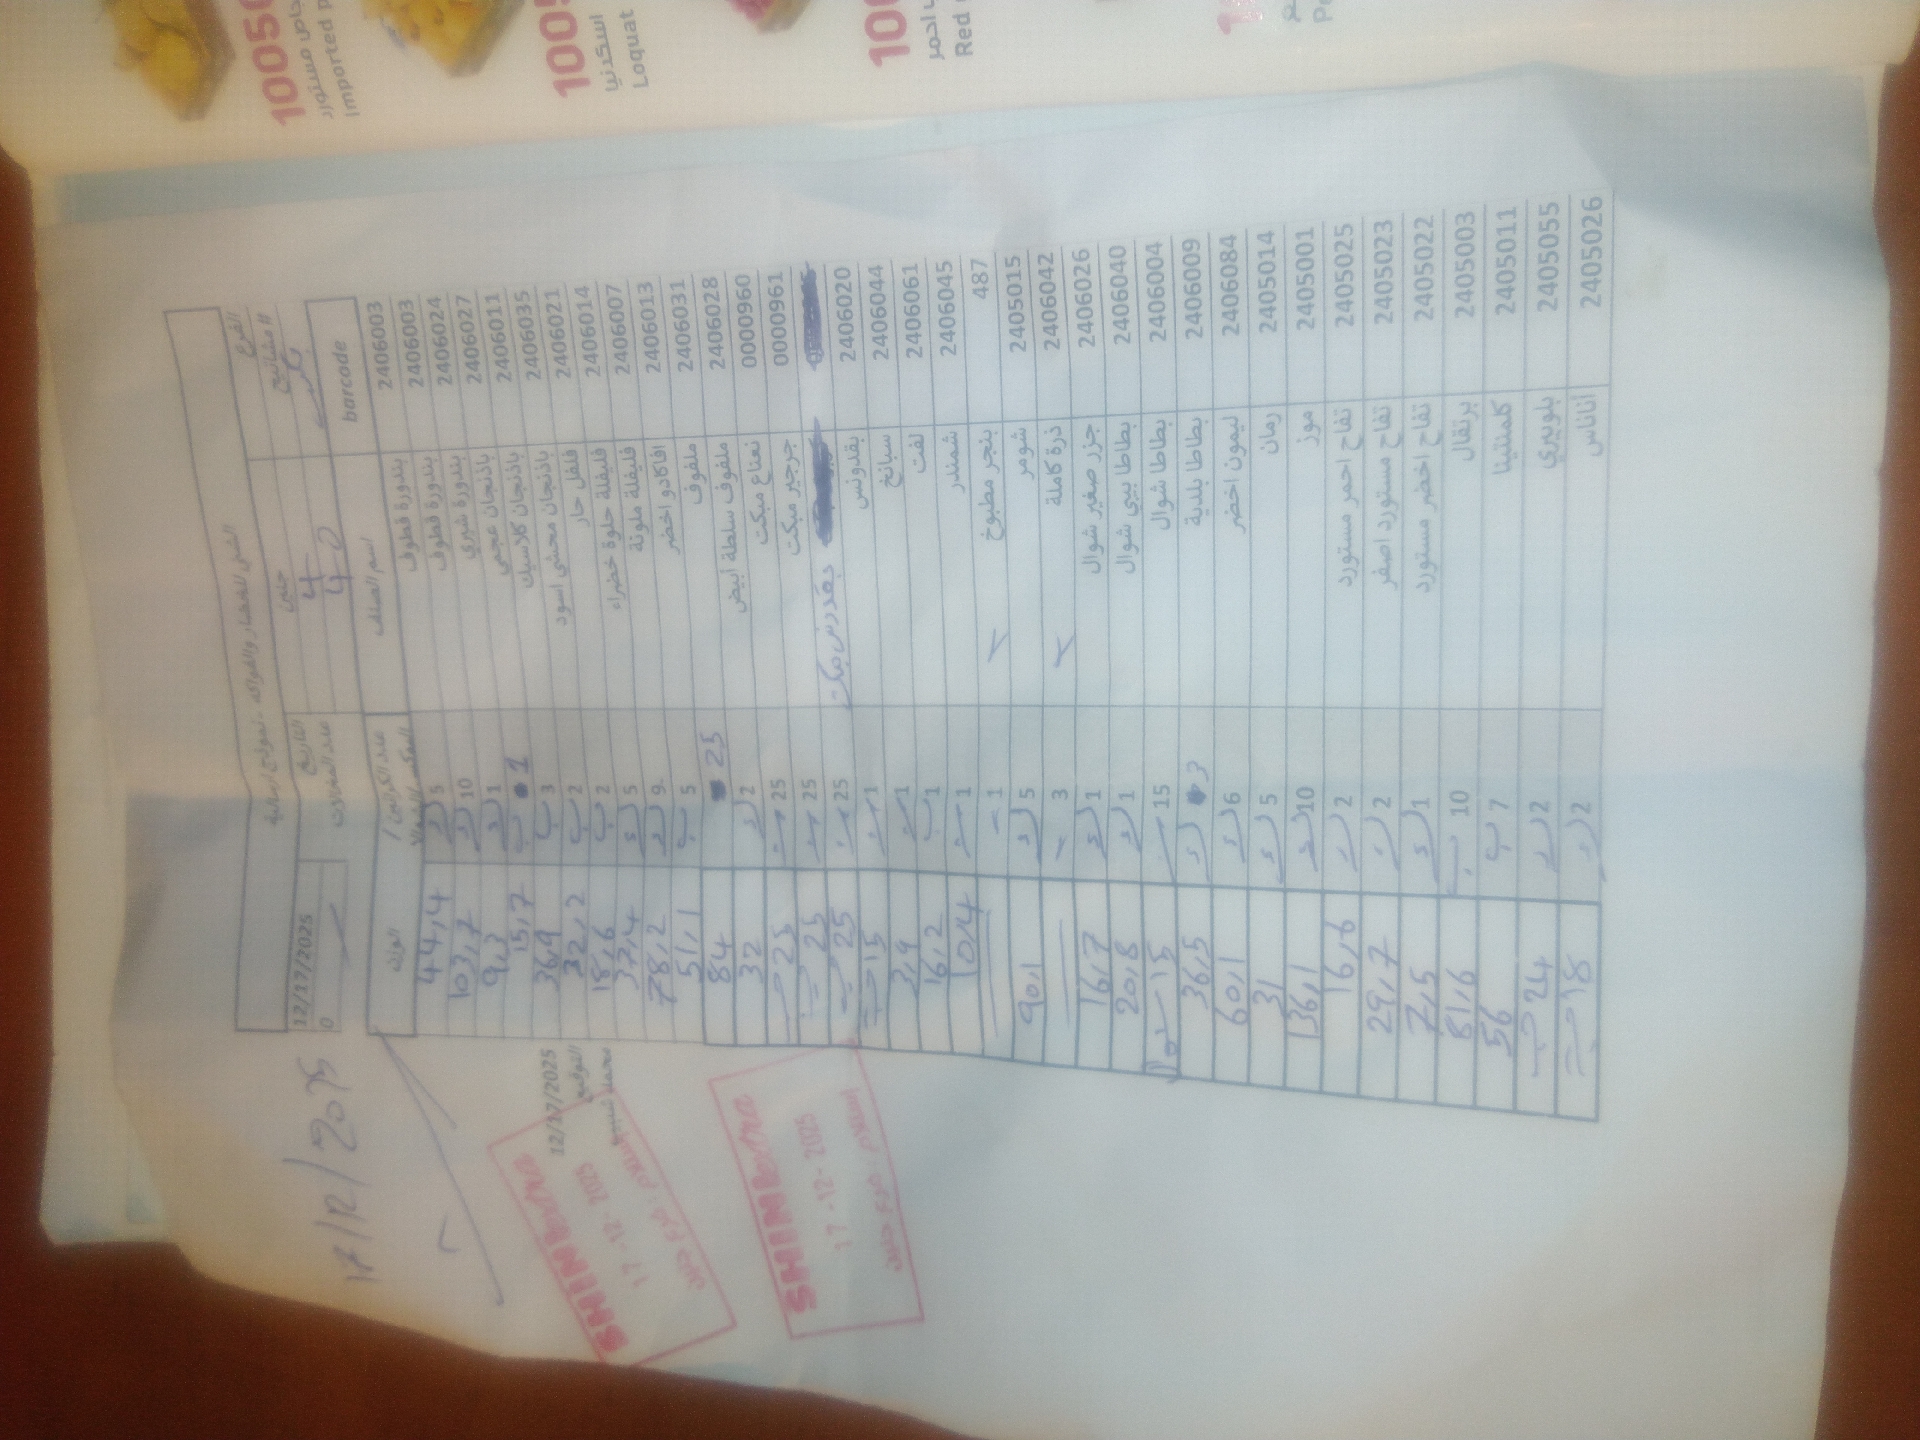 10050
اجاص مستورد
Imported
1005
اسكدنيا
Loquat
100
احمر
Red
الفرع
التاريخ
12/17/2025
جنين
عدد المشاتيح
44
0
42
barcode
اسم الصنف
عدد الكراتين /
الوزن
2406003 بندورة قطوف 5 44,4
2406003 بندورة قطوف 10 103,7
2406024 بندورة شيري 1 9,3
2406027 باذنجان عجمي 1 15,7
2406011 باذنجان كلاسيك 3 36,9
2406035 باذنجان محشي اسود 2 32,2
2406021 فلفل حار 2 18,6
2406014 فليفلة حلوة خضراء 5 37,4
2406007 فليفلة ملونة 9 78,2
2406013 افاكادو اخضر 5 51,1
2406031 ملفوف 25 84
2406028 ملفوف سلطة ابيض 2 32
0000960 نعناع مبكت 25 25
0000961 جرجير مبكت 25 25
بقدونس مبكت 25 25
2406020 بقدونس 1 15
2406044 سبانخ 1 3,9
2406061 لفت 1 16,2
2406045 شمندر 1 10,4
487 بنجر مطبوخ 1
2405015 شومر 5 90,1
2406042 ذرة كاملة 3
2406026 جزر صغير شوال 1 16,7
2406040 بطاطا بيبي شوال 1 20,8
2406004 بطاطا شوال 15 15 شوال
2406009 بطاطا بلدية 3 36,5
2406084 ليمون اخضر 6 60,1
2405014 رمان 5 31
2405001 موز 10 136,1
2405025 تفاح احمر مستورد 2 16,6
2405023 تفاح مستورد اصفر 2 29,7
2405022 تفاح اخضر مستورد 1 7,5
2405003 برتقال 10 81,6
2405011 كلمنتينا 7 56
2405055 بلوبيري 2 24
2405026 اناناس 2 18
17/12/2025
12/17/2025
التوقيع
SHINI extra
17-12-2025
استلام فرع جنين
SHINI extra
17-12-2025
استلام فرع جنين